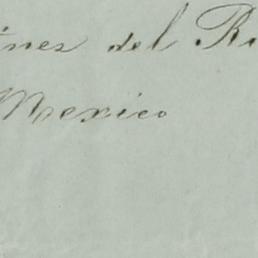 ines del R
Mexico